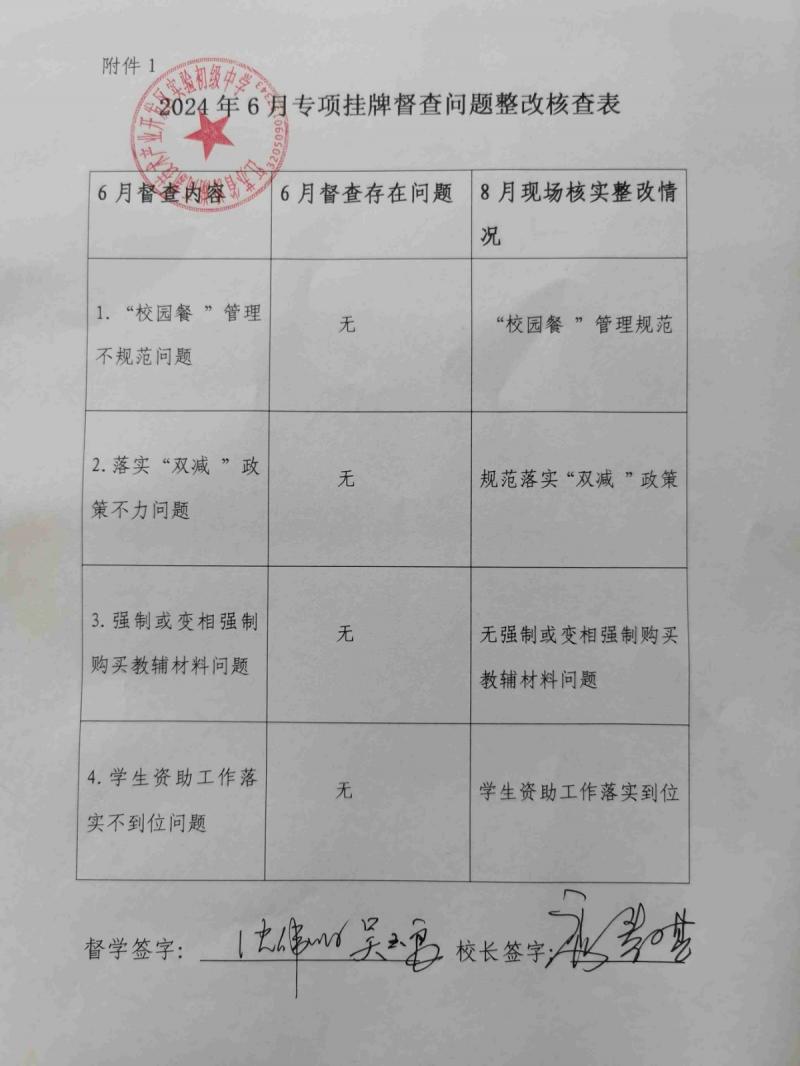 附件 1
2024 年 6 月专项挂牌督查问题整改核查表
6 月督查内容
6 月督查存在问题
8 月现场核实整改情
况
1. “校园餐 ”管理
不规范问题
无
“校园餐 ”管理规范
2. 落实“双减 ”政
策不力问题
无
规范落实“双减 ”政策
3. 强制或变相强制
购买教辅材料问题
无
无强制或变相强制购买
教辅材料问题
4. 学生资助工作落
实不到位问题
无
学生资助工作落实到位
督学签字:
校长签字: